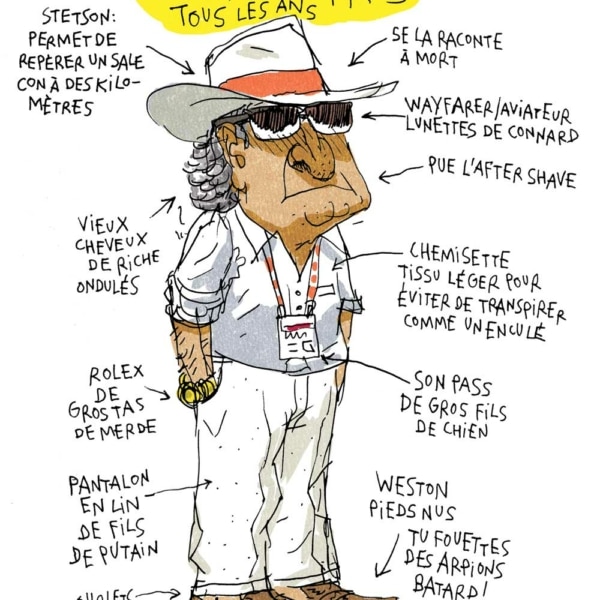 TOUS LES ANS
STETSON:
PERMET DE
REPÉRER UN SALE
CON À DES KILO-
MÈTRES
SE LA RACONTE
À MORT
WAYFARER/AVIATEUR
LUNETTES DE CONNARD
PUE L'AFTER SHAVE
VIEUX
CHEVEUX
DE RICHE
ONDULÉS
CHEMISETTE
TISSU LÉGER POUR
ÉVITER DE TRANSPIRER
COMME UN ENCULÉ
ROLEX
DE
GROS TAS
DE MERDE
SON PASS
DE GROS FILS
DE CHIEN
PANTALON
EN LIN
DE FILS
DE PUTAIN
WESTON
PIEDS NUS
TU FOUETTES
DES ARPIONS
BATARD!